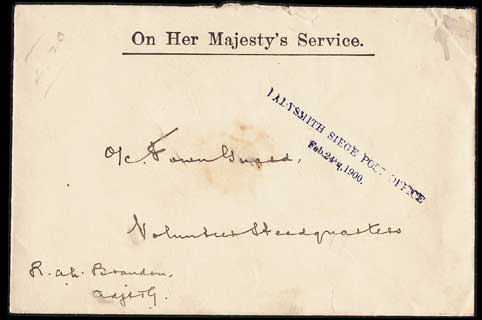 On Her Majesty's Service.
LADYSMITH SIEGE POST OFFICE
Feb. 24th, 1900.
O/C. Town Guard,
Volunteer Headquarters
Brandon,